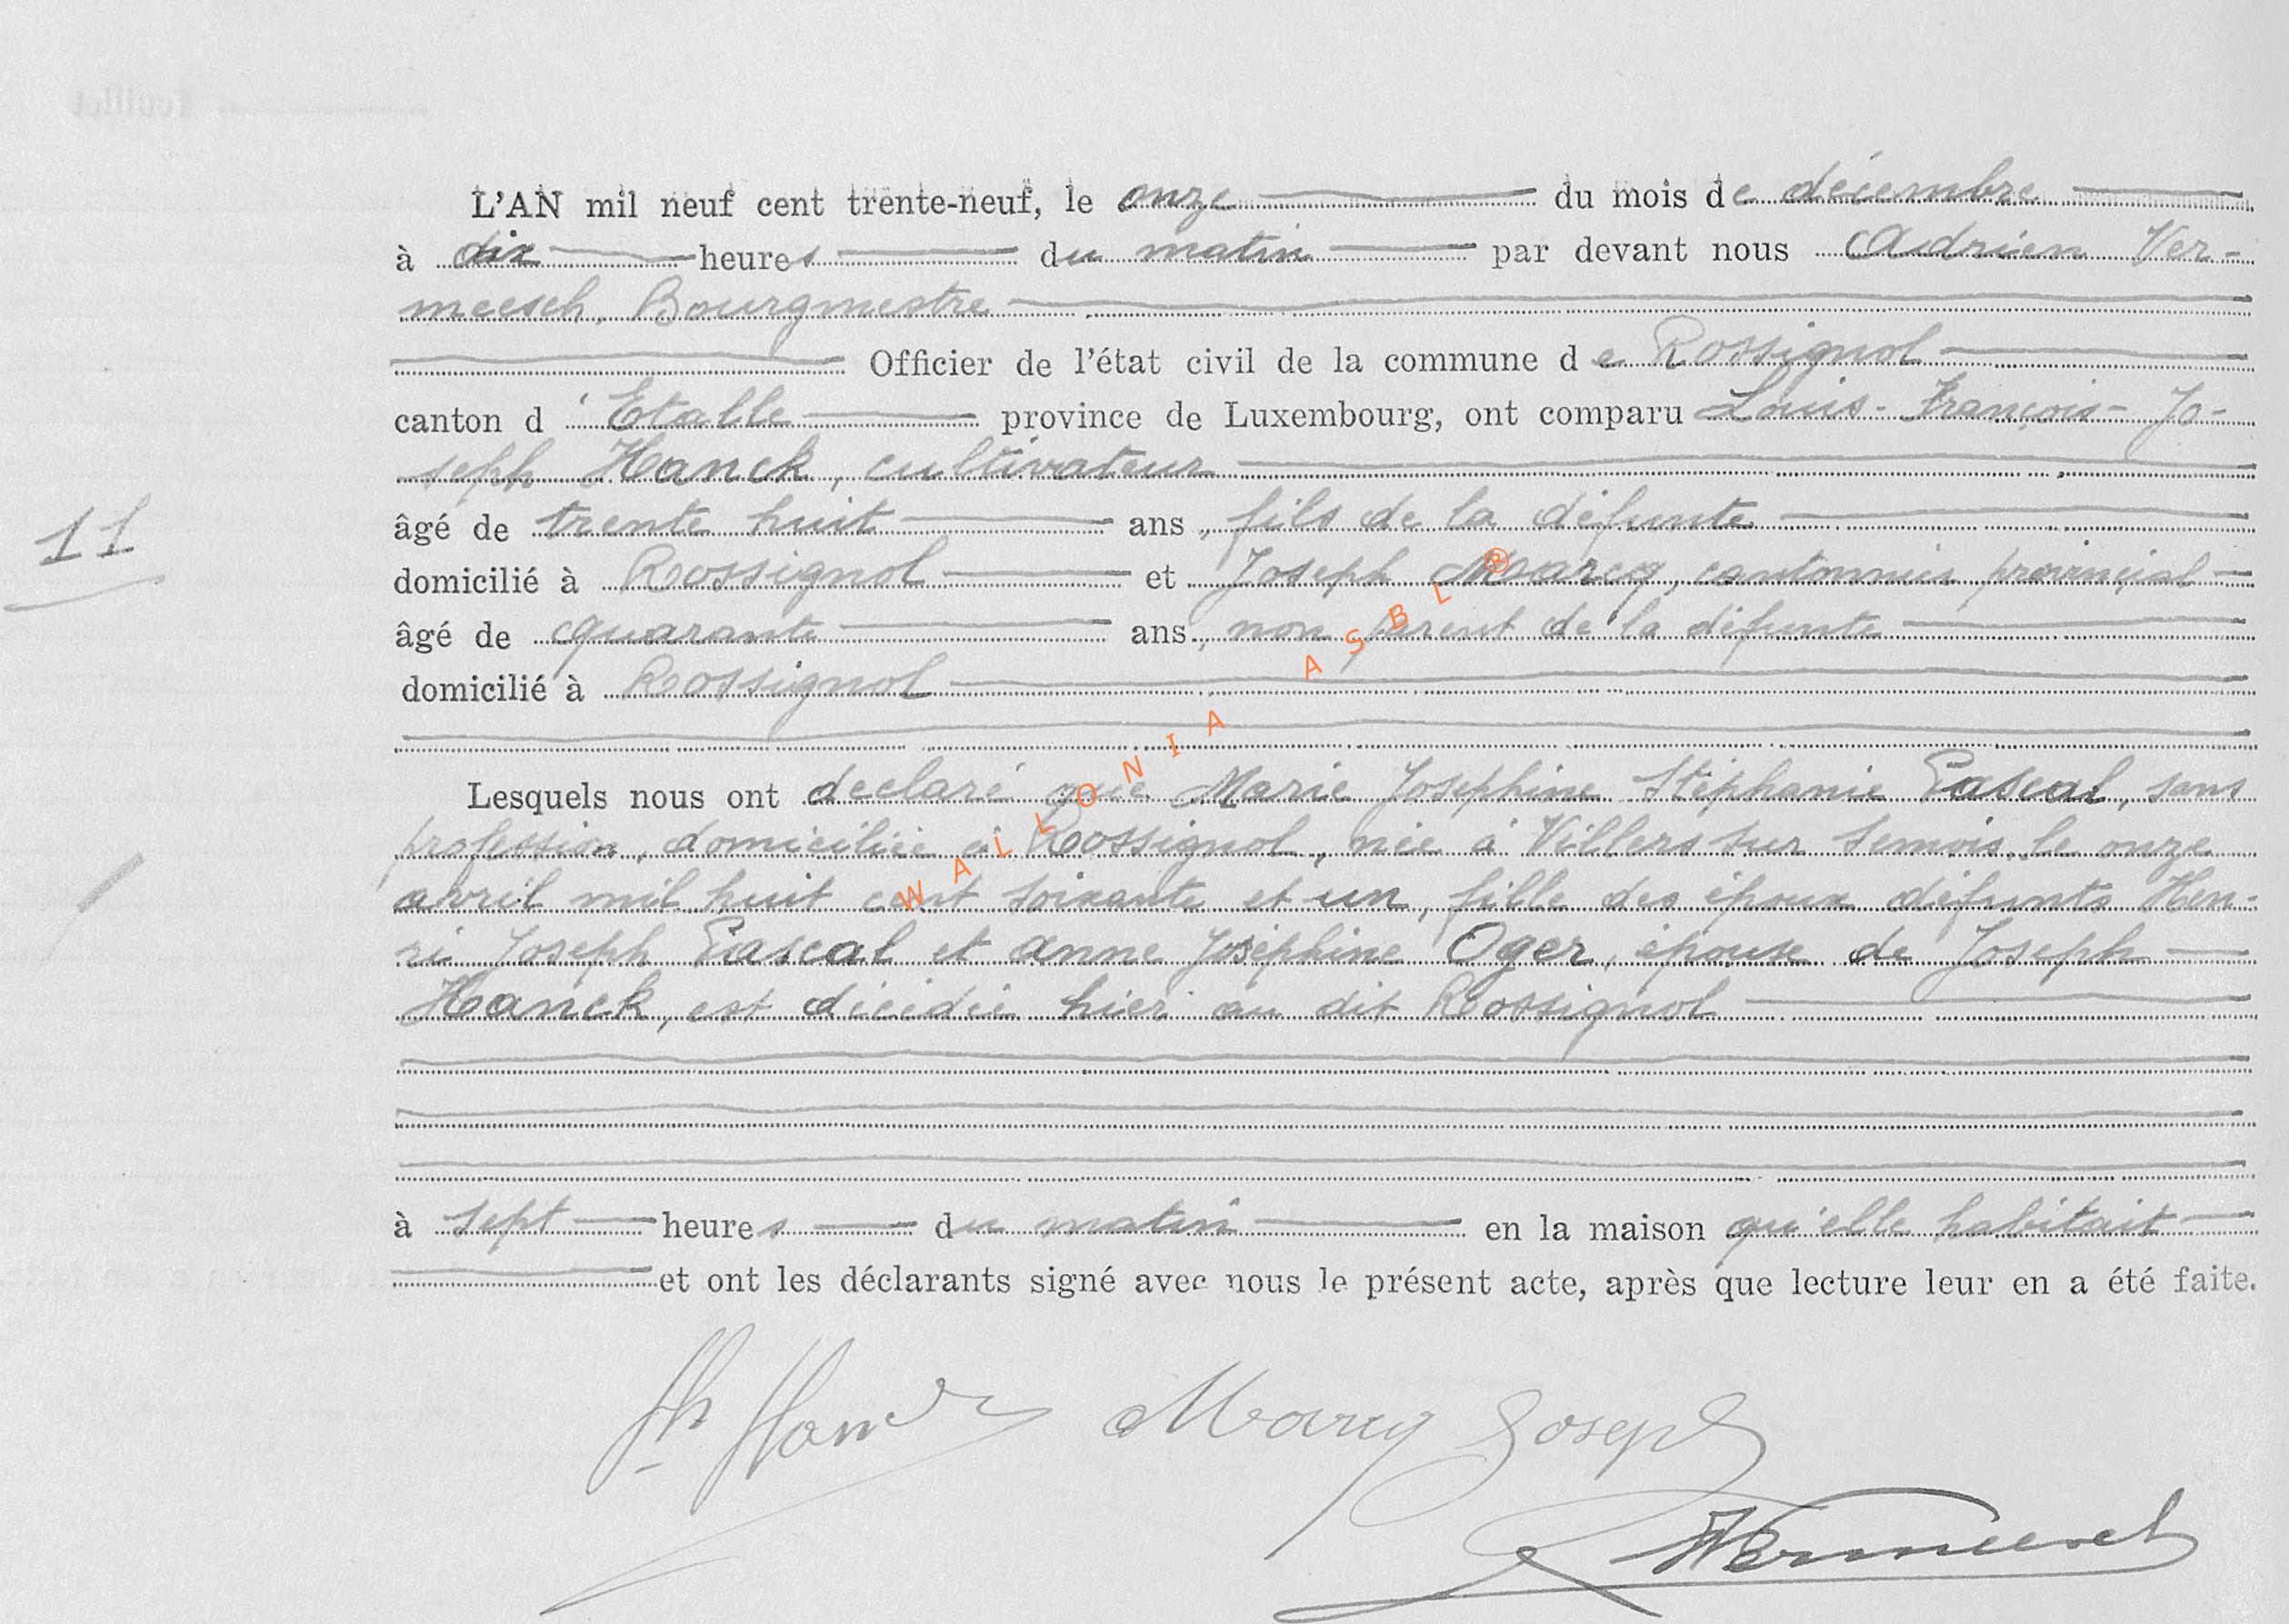 L'AN mil neuf cent trente-neuf, le onze du mois de décembre
à dix heures du matin par devant nous Adrien Ver-
meesch, Bourgmestre
Officier de l'état civil de la commune de Rossignol
canton d'Etalle province de Luxembourg, ont comparu Louis-François-Jo-
seph Hanck, cultivateur
âgé de trente huit ans, fils de la défunte
11
domicilié à Rossignol et Joseph Marcq, cantonnier provincial
âgé de quarante ans, non parent de la défunte
domicilié à Rossignol
Lesquels nous ont declaré que Marie Josephine Stéphanie Pascal, sans
profession, domiciliée à Rossignol, née à Villers sur Semois, le onze
avril mil huit cent soixante et un, fille des époux défunts Hen-
ri Joseph Pascal et Anne Joséphine Oger, épouse de Joseph
Hanck, est décédée hier au dit Rossignol
à sept heures du matin en la maison qu'elle habitait
et ont les déclarants signé avec nous le présent acte, après que lecture leur en a été faite.
Hanck Marcq Joseph
AVermeesch
WALLONIA ASBL ®
feuillet